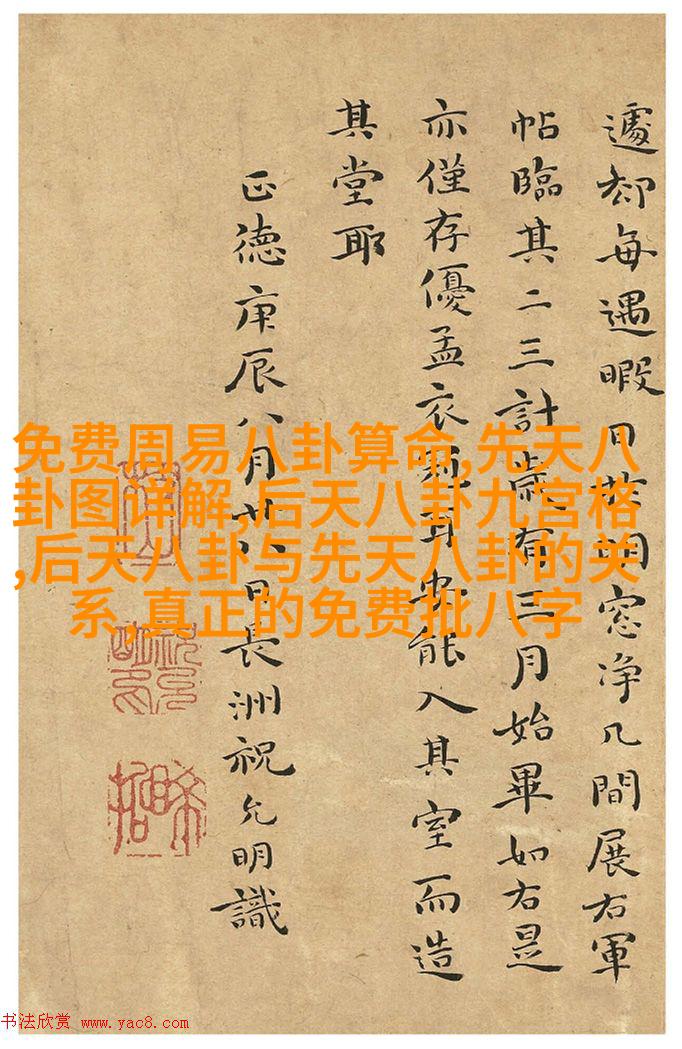 遽却每遇暇日於明窓净几間展右軍
帖臨其二三計歲有三月始畢如右是
亦僅存優孟衣冠耳安能入其室而造
其堂耶
正德庚辰八月廿八日長洲祝允明識
免费周易八卦算命,先天八
卦图详解,后天八卦九宫格
,后天八卦与先天八卦的关
系,真正的免费批八字
书法欣赏 www.yac8.com